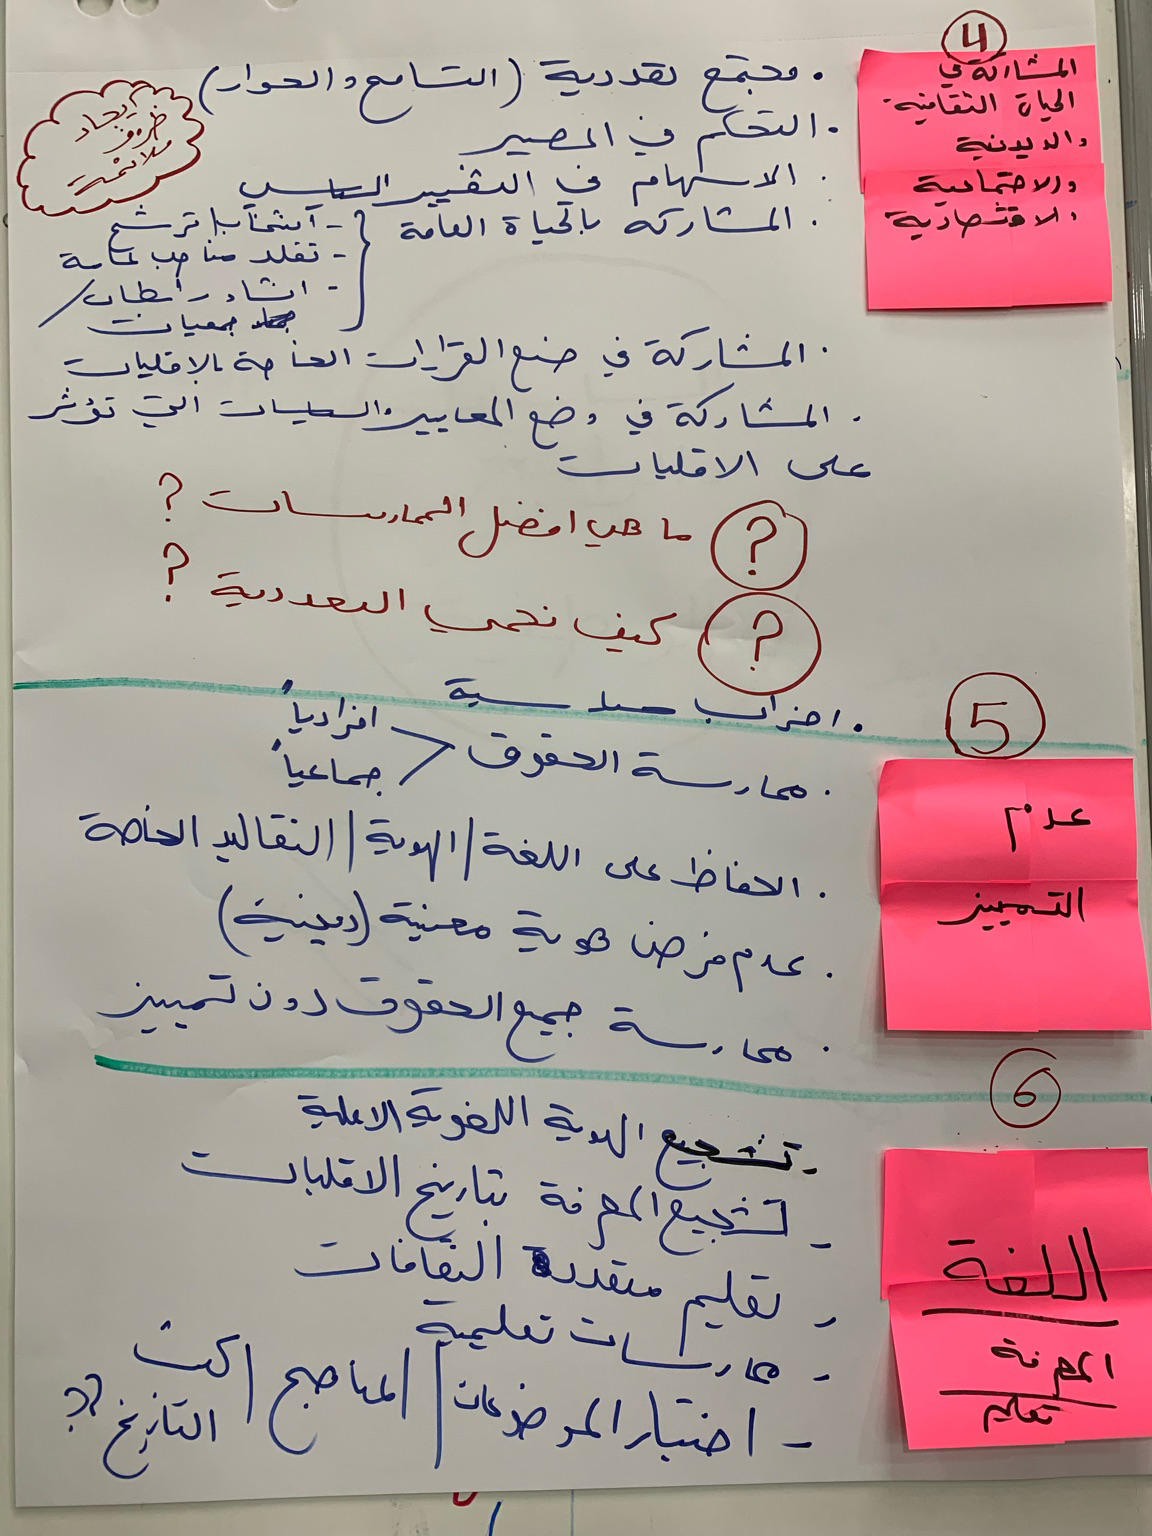 4
المشاركة في
الحياة الثقافية
والدينية
والاجتماعية
الاقتصادية
• مجتمع تعددية (التسامح والحوار)
ايجاد
ظروف
ملائمة
• التحكم في المصير
• الاسهام في التغيير السياسي
• المشاركة بالحياة العامة
- انتخاب / ترشح
- تقلد مناصب عامة
- انشاء رابطات /
جمعيات
• المشاركة في صنع القرارات الخاصة بالاقليات
• المشاركة في وضع المعايير والسياسات التي تؤثر
على الاقليات
? ما هي افضل الممارسات ?
? كيف نحمي التعددية ?
5
عدم
التمييز
• احزاب سياسية
• ممارسة الحقوق < افرادياً
جماعياً
• الحفاظ على اللغة / الهوية / التقاليد الخاصة
• عدم فرض هوية معينة (دينية)
• ممارسة جميع الحقوق دون تمييز
6
اللغة
المعرفة
تعليم
- تشجيع الهوية اللغوية
- تشجيع المعرفة بتاريخ الاقليات
- تعليم متعدد الثقافات
- ممارسات تعليمية
- اختيار الموضوعات / المناهج / كتب
التاريخ ??